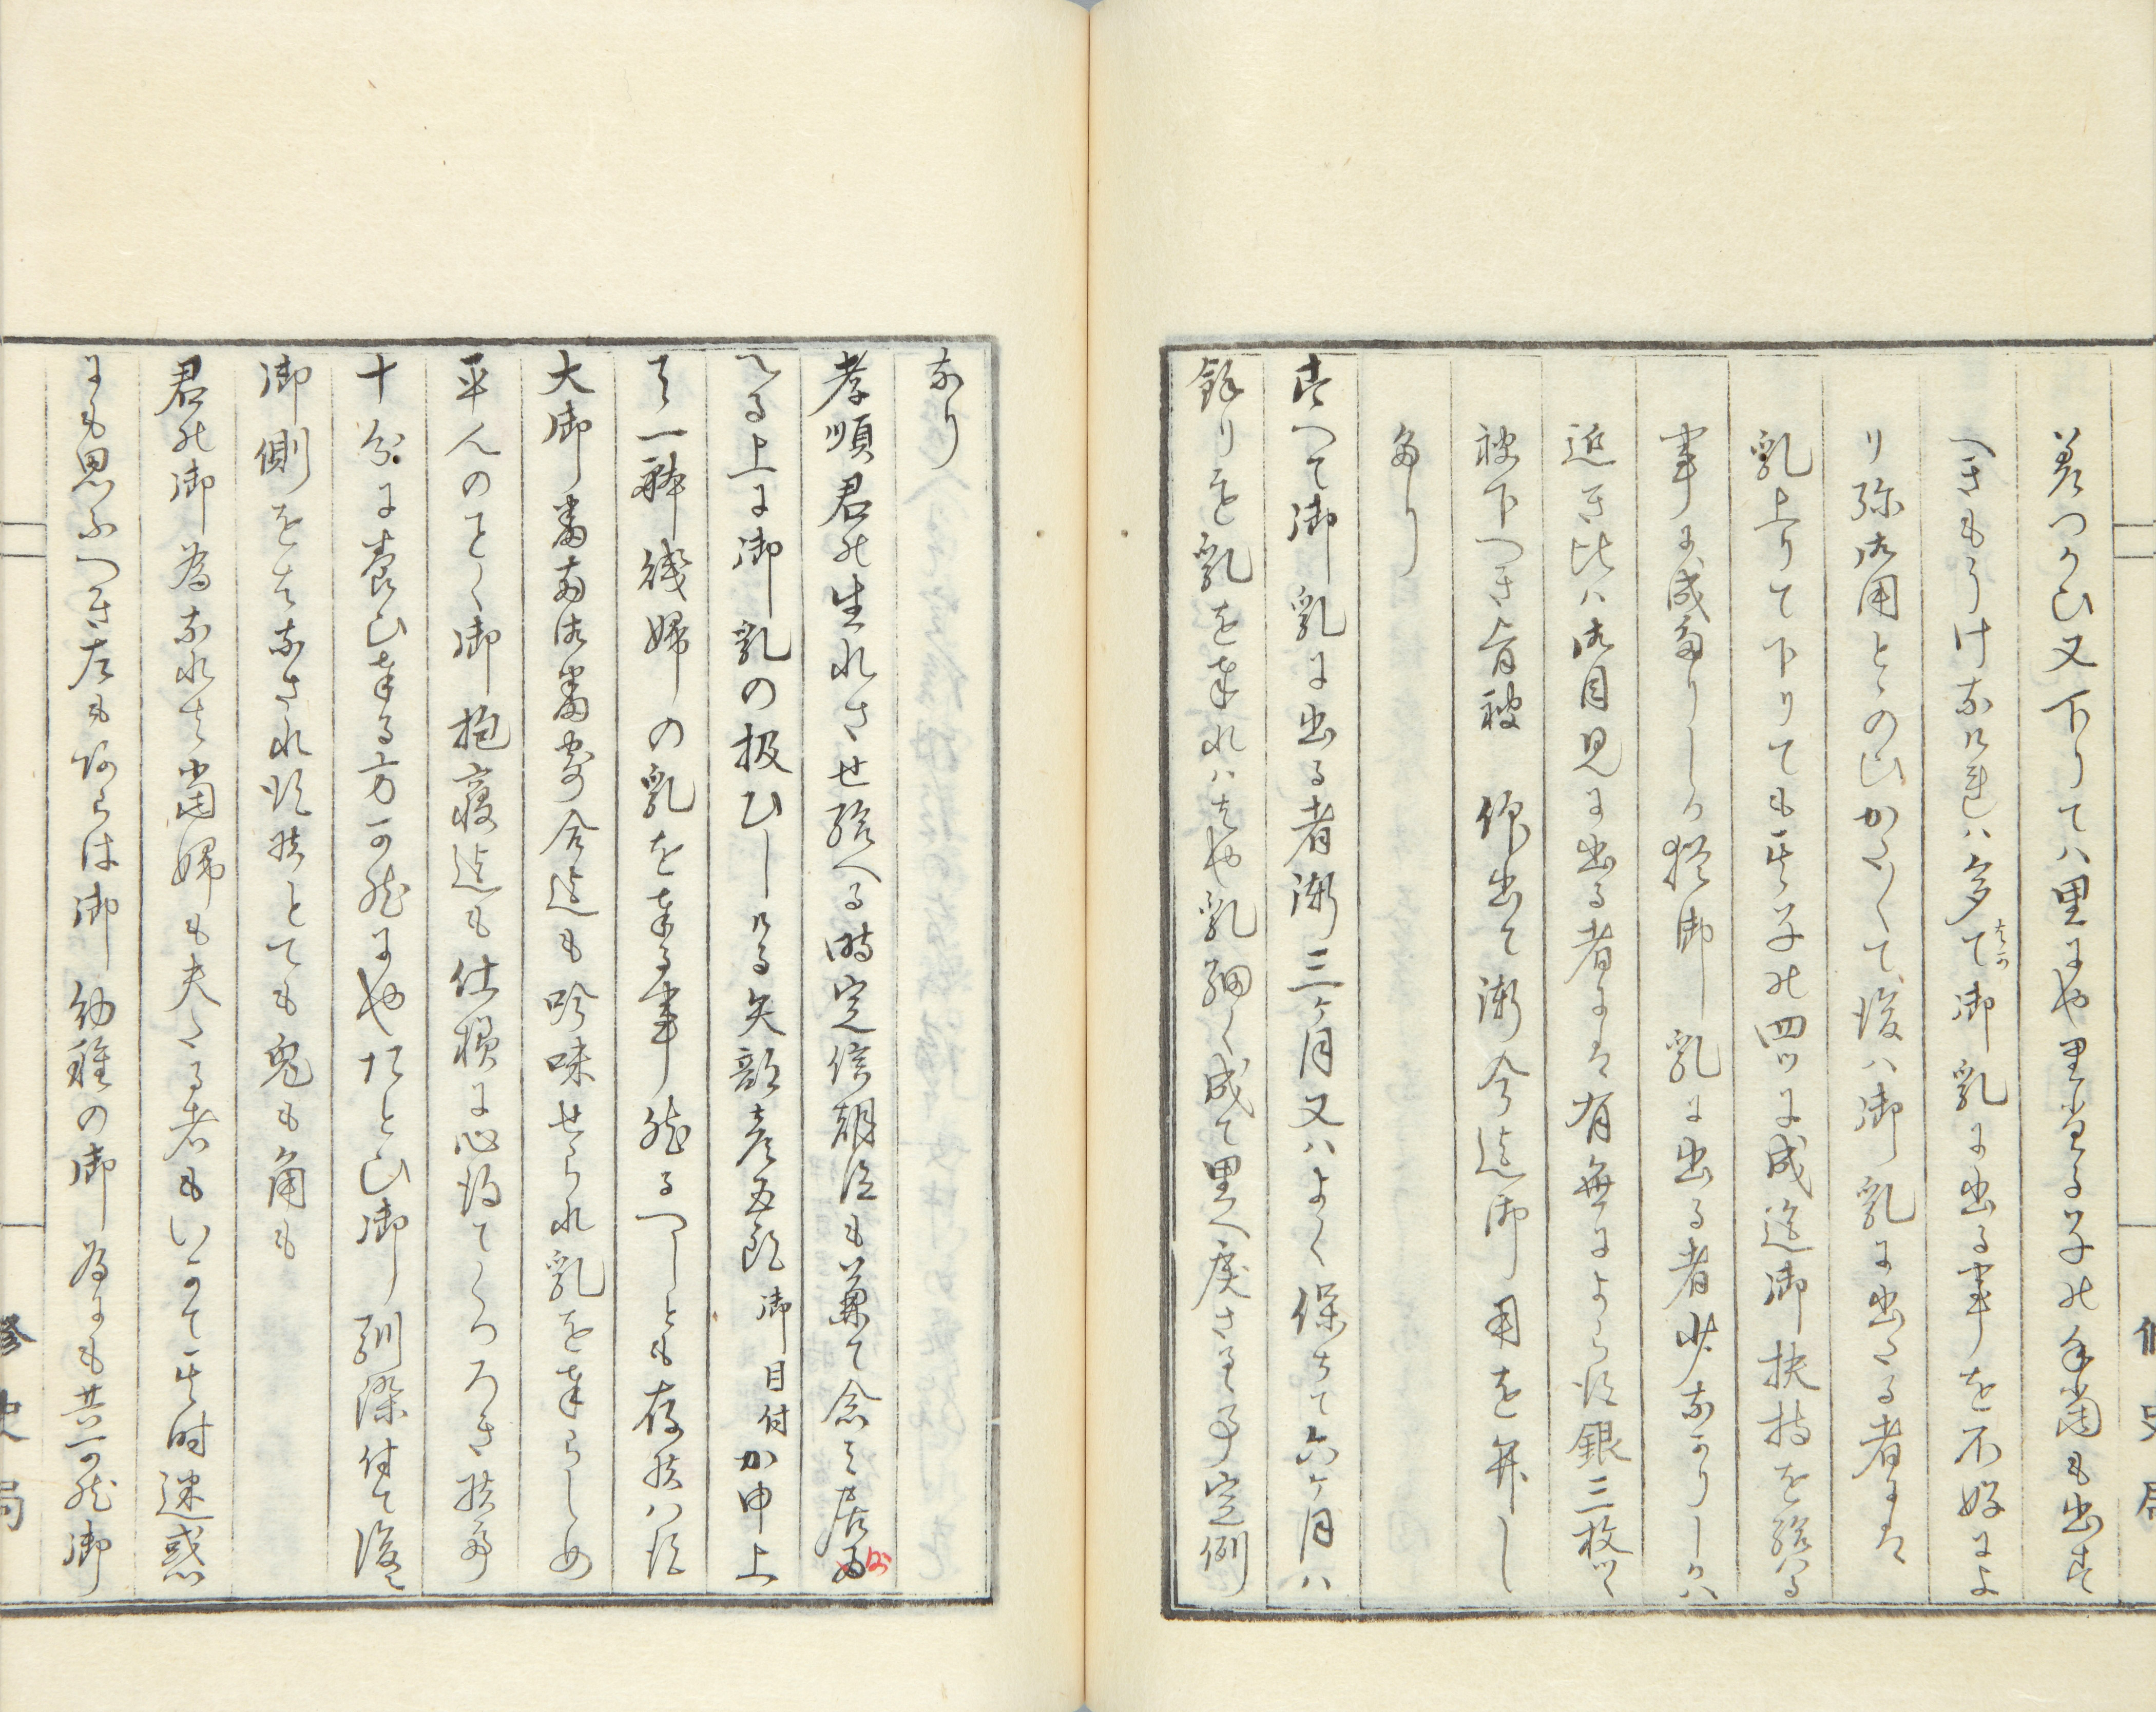 差つかひ又下りてハ里にや里当る子の手当も出す
へきもうけなけれハ多て御乳に出る事を不好によ
り弥御用とゝのひかたくて後ハ御乳に出たる者には
乳上りて下りても其子の四ツに成迄御扶持を給はる
事に成たりしか猶御乳に出る者少なかりしかハ
近き比ハ御目見に出る者には有無によらす銀三枚つゝ
被下へき旨被 仰出て漸今迄御用を弁し
たり
すへて御乳に出る者漸三ヶ月又ハよく保ちて六ヶ月ハ
餘りを乳を奉れハはや乳細く成て里へ戻さるゝ事定例
なり
孝順君の生れさせ給へる時定信朝臣も兼て念し居給
へる上に御乳の扱ひしける矢部彦五郎御目付か申上
て一躰賤婦の乳を奉る事然るへしとも存せハす
大御番両御番寄合迄も吟味せられ乳を奉らしめ
平人のことく御抱寝迄も仕損に心得てくつろき扶
十分に養ひ奉る方可然にやたとひ御馴染付て後に
御側をはなされすとても鬼も角も
君の御為なれは当婦も夫たる者もいかて其時迷惑
にも思ふへき左もあらは御幼稚の御為にも共可然御
修史局